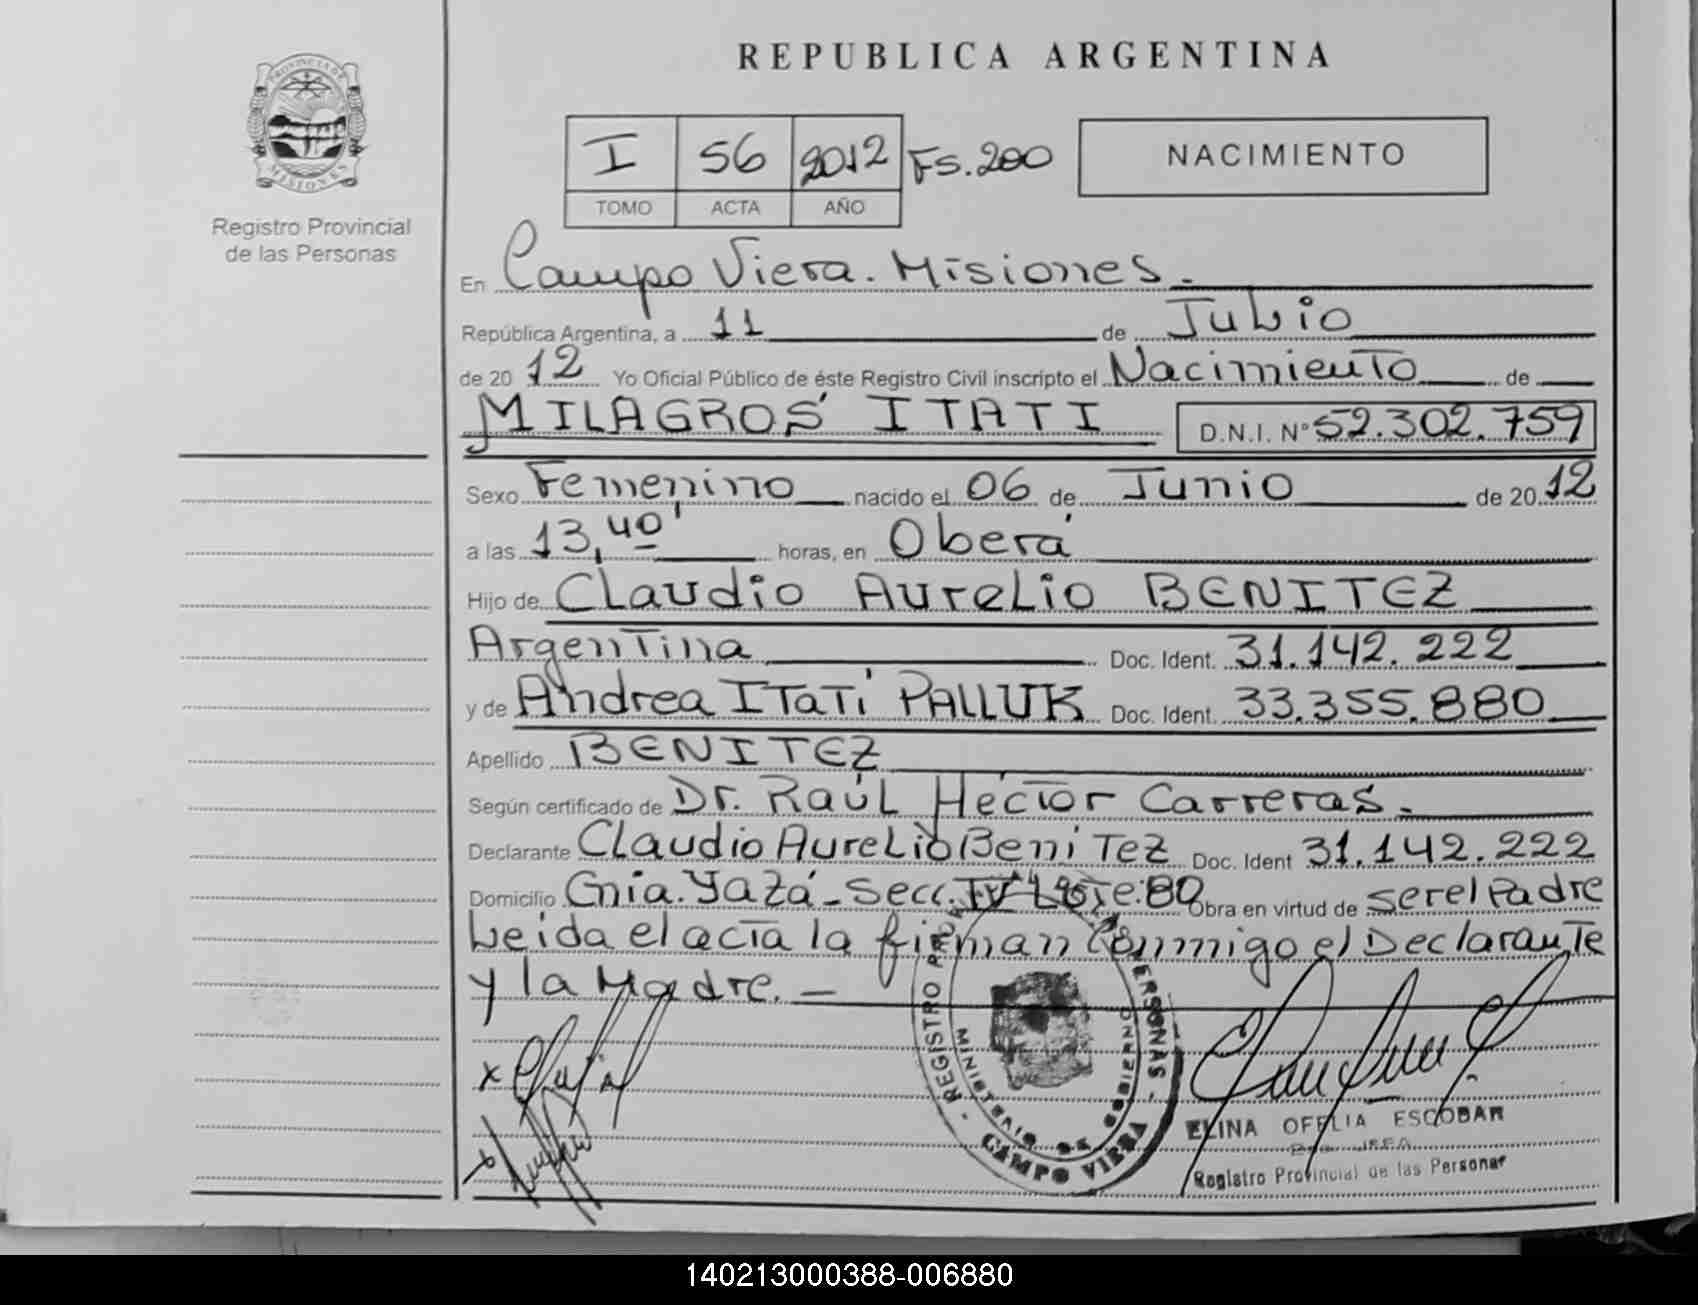 PROVINCIA DE
MISIONES
Registro Provincial
de las Personas
REPUBLICA ARGENTINA
I 56 2012 Fs. 200
TOMO ACTA AÑO
NACIMIENTO
En Campo Viera. Misiones.
República Argentina, a 11 de Julio
de 2012 Yo Oficial Público de éste Registro Civil inscripto el Nacimiento de
MILAGROS ITATI D.N.I. N° 52.302.759
Sexo Femenino nacido el 06 de Junio de 2012
a las 13,40' horas, en Oberá
Hijo de Claudio Aurelio BENITEZ
Argentina Doc. Ident. 31.142.222
y de Andrea ITATí PALLUK Doc. Ident. 33.355.880
Apellido BENITEZ
Según certificado de Dr. Raúl Héctor Carreras.
Declarante Claudio Aurelio BeniTez Doc. Ident 31.142.222
Domicilio Cnia. Yazá - Secc. IV Lote: 80 Obra en virtud de ser el Padre
Leida el acta la firman Conmigo el Declarante
y la Madre. —
REGISTRO PERSONAS
MINISTERIO DE GOBIERNO
CAMPO VIERA
ELINA OFELIA ESCOBAR
Registro Provincial de las Personas
140213000388-006880